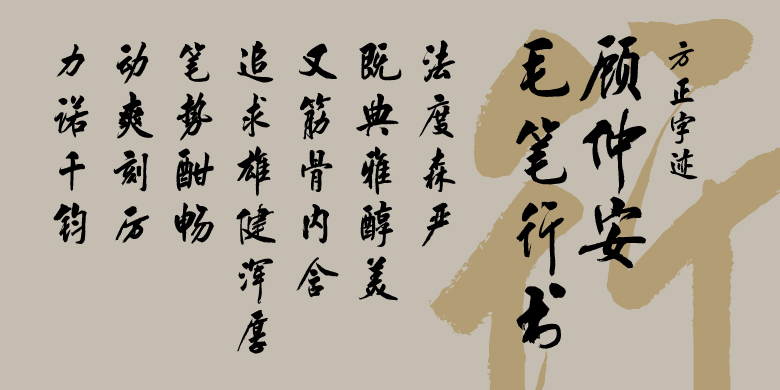 方正字迹
顾仲安
毛笔行书
法度森严
既典雅醇美
又筋骨内含
追求雄健浑厚
笔势酣畅
动爽刻厉
力诺千钧
行